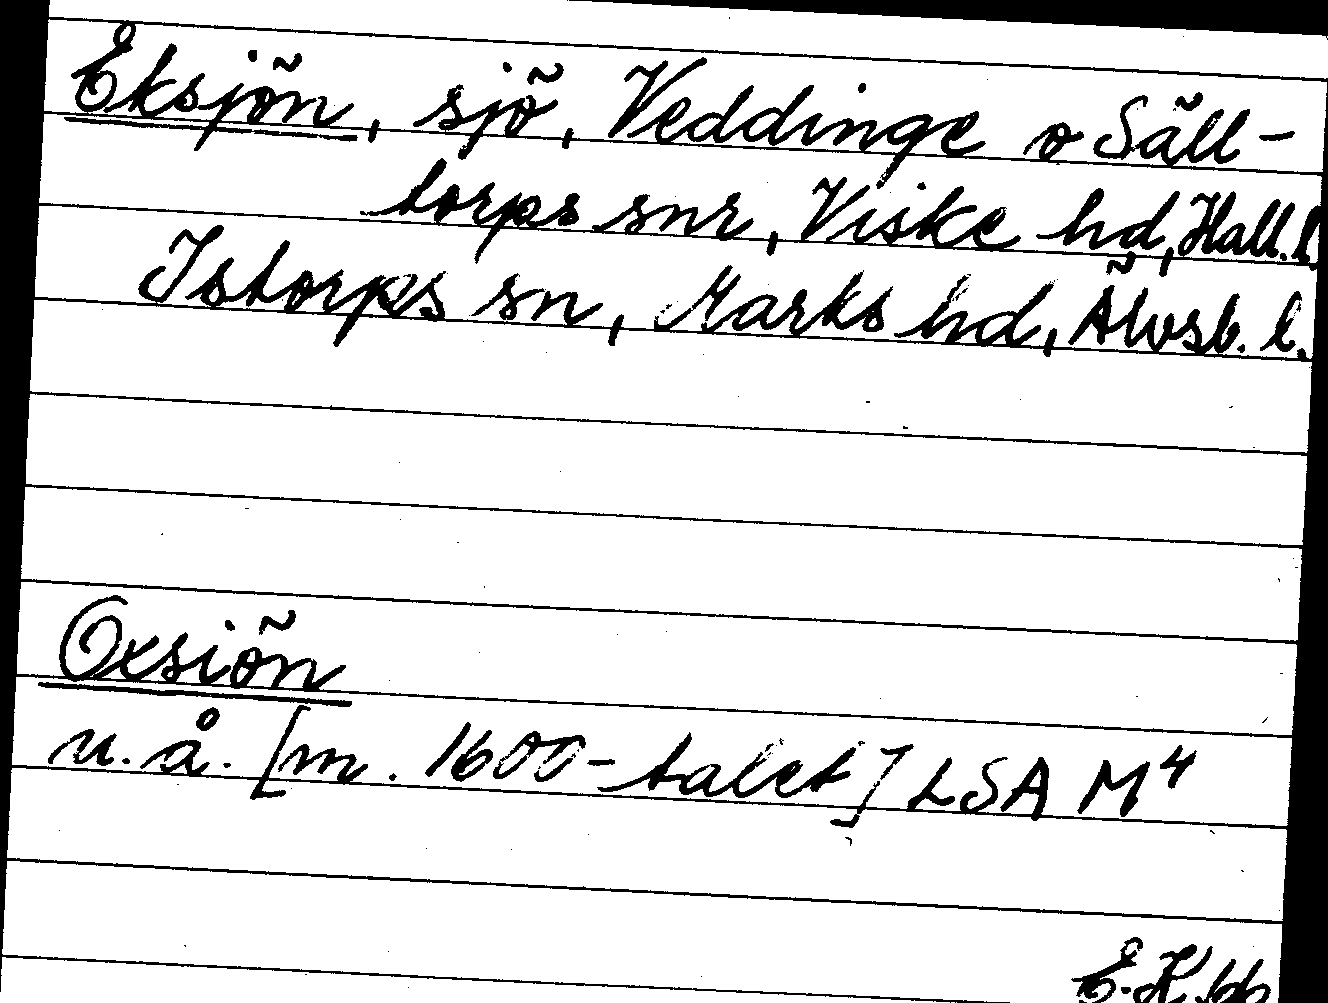 Eksjön, sjö, Veddinge o Säll-
torps snr, Viske hd, Hall. l.
Istorps sn, Marks hd, Älvsb. l.
Oxsiön
u.å. [m. 1600-talet] LSA M4
E.H. 66